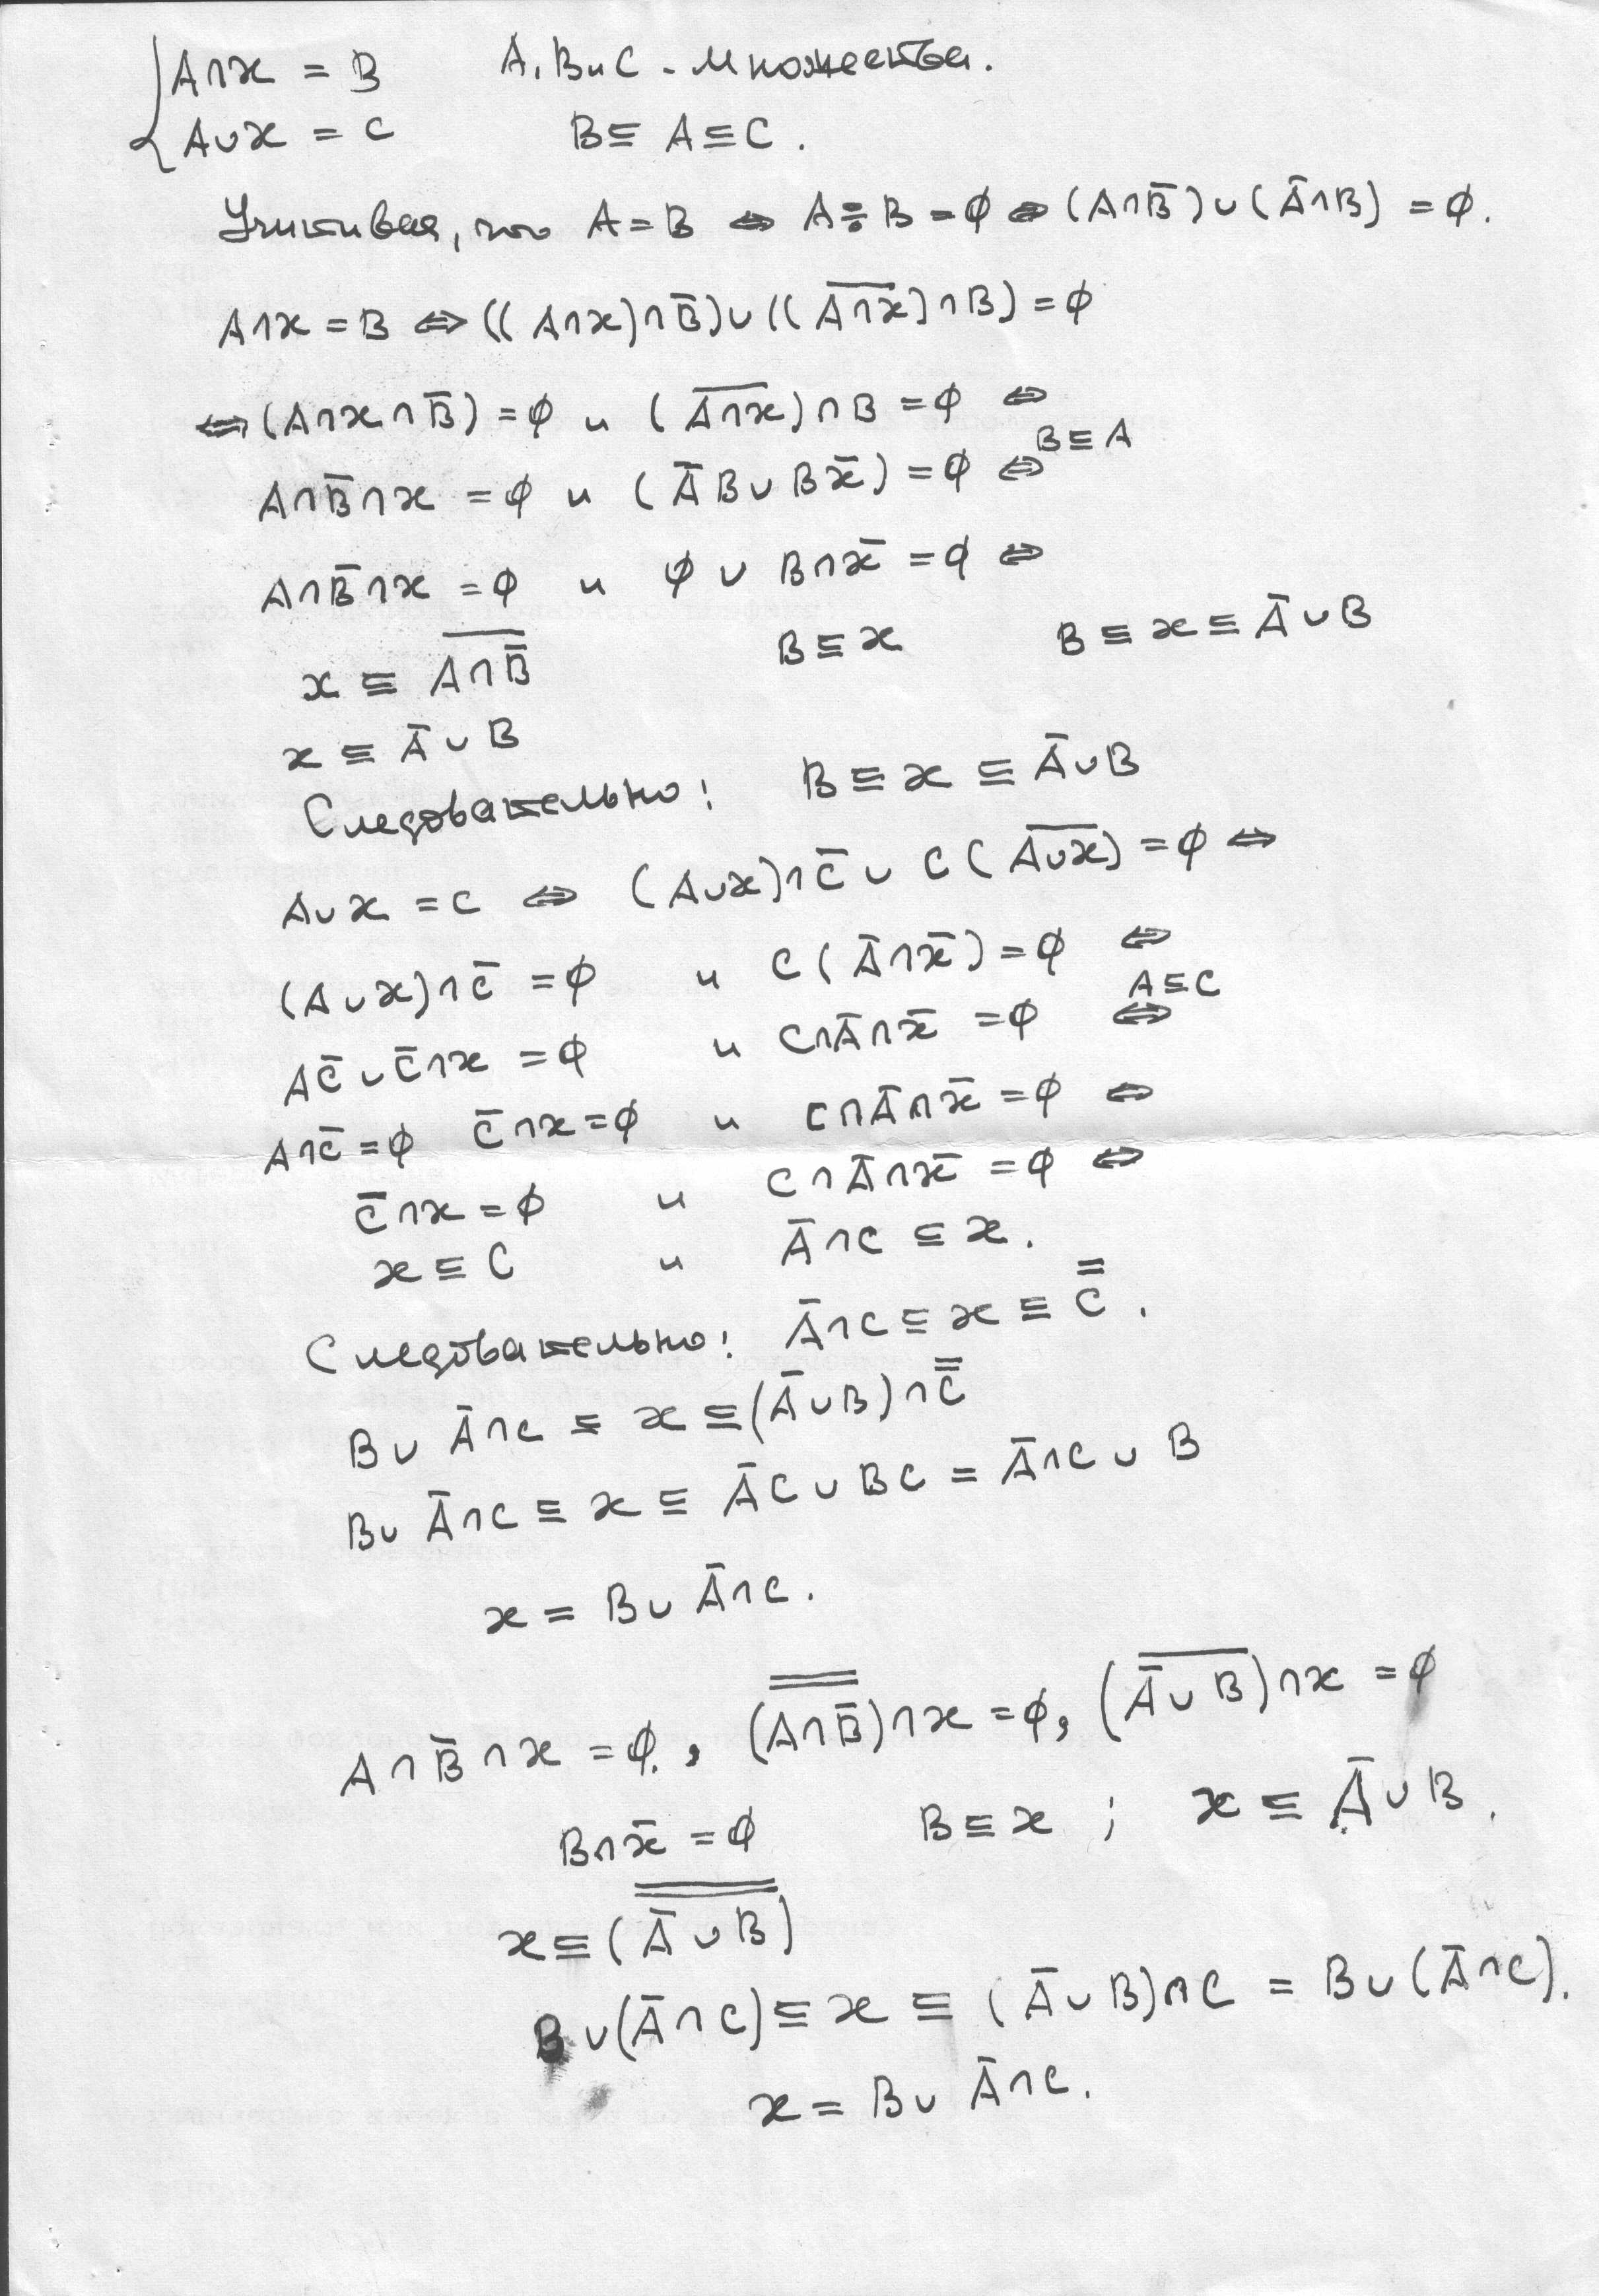 { A∩x = B A, B и C - множества.
A∪x = C B ⊆ A ⊆ C.
Учитывая, что A = B ⇔ A ÷ B = ∅ ⇔ (A∩B̅) ∪ (A̅∩B) = ∅.
A∩x = B ⇔ ((A∩x)∩B̅) ∪ ((\overline{A∩x})∩B) = ∅
⇔ (A∩x∩B̅) = ∅ и (\overline{A∩x})∩B = ∅ ⇔
A∩B̅∩x = ∅ и (A̅B ∪ Bx̅) = ∅ ⇔ B ⊆ A
A∩B̅∩x = ∅ и ∅ ∪ B∩x̅ = ∅ ⇔
x ⊆ \overline{A∩B̅} B ⊆ x B ⊆ x ⊆ A̅∪B
x ⊆ A̅∪B
Следовательно: B ⊆ x ⊆ A̅∪B
A∪x = C ⇔ (A∪x)∩C̅ ∪ C(\overline{A∪x}) = ∅ ⇔
(A∪x)∩C̅ = ∅ и C(A̅∩x̅) = ∅ ⇔
AC̅ ∪ C̅∩x = ∅ и C∩A̅∩x̅ = ∅ ⇔ A ⊆ C
A∩C̅ = ∅ C̅∩x = ∅ и C∩A̅∩x̅ = ∅ ⇔
C̅∩x = ∅ и C∩A̅∩x̅ = ∅ ⇔
x ⊆ C и A̅∩C ⊆ x.
Следовательно: A̅∩C ⊆ x ⊆ \overline{\overline{C}}.
B∪ A̅∩C ⊆ x ⊆ (A̅∪B)∩\overline{\overline{C}}
B∪ A̅∩C ⊆ x ⊆ A̅C ∪ BC = A̅∩C ∪ B
x = B∪ A̅∩C.
A∩B̅∩x = ∅, (\overline{\overline{A∩B̅}})∩x = ∅, (\overline{A̅∪B})∩x = ∅
B∩x̅ = ∅ B ⊆ x ; x ⊆ A̅∪B.
x ⊆ (\overline{\overline{A̅∪B}})
B∪(A̅∩C) ⊆ x ⊆ (A̅∪B)∩C = B∪(A̅∩C).
x = B∪ A̅∩C.